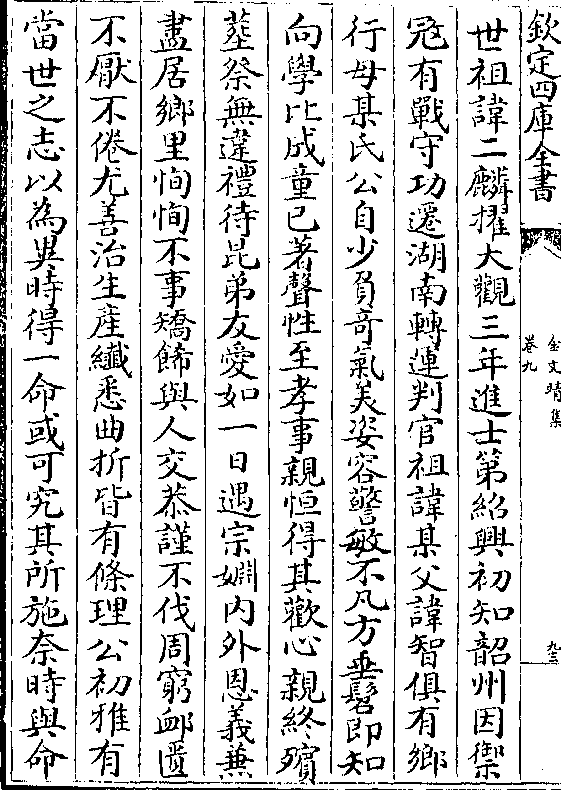 欽定四庫全書
金文靖集
卷九
九三
世祖諱二麟擢大觀三年進士第紹興初知韶州因禦
冦有戰守功遷湖南轉運判官祖諱某父諱智俱有鄉
行母某氏公自少負竒氣美姿容警敏不凡方垂髫即知
向學比成童已著聲性至孝事親恒得其歡心親終殯
塟祭無違禮待昆弟友愛如一日遇宗婣内外恩義兼
盡居鄉里恂恂不事矯餙與人交恭謹不伐周窮䘏匱
不厭不倦尤善治生産纎悉曲折皆有條理公初雅有
當世之志以為異時得一命或可究其所施奈時與命